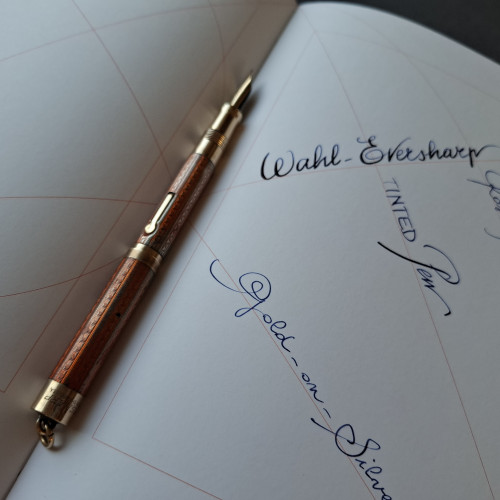 Wahl-Eversharp
TINTED
Pen
Gold-on-